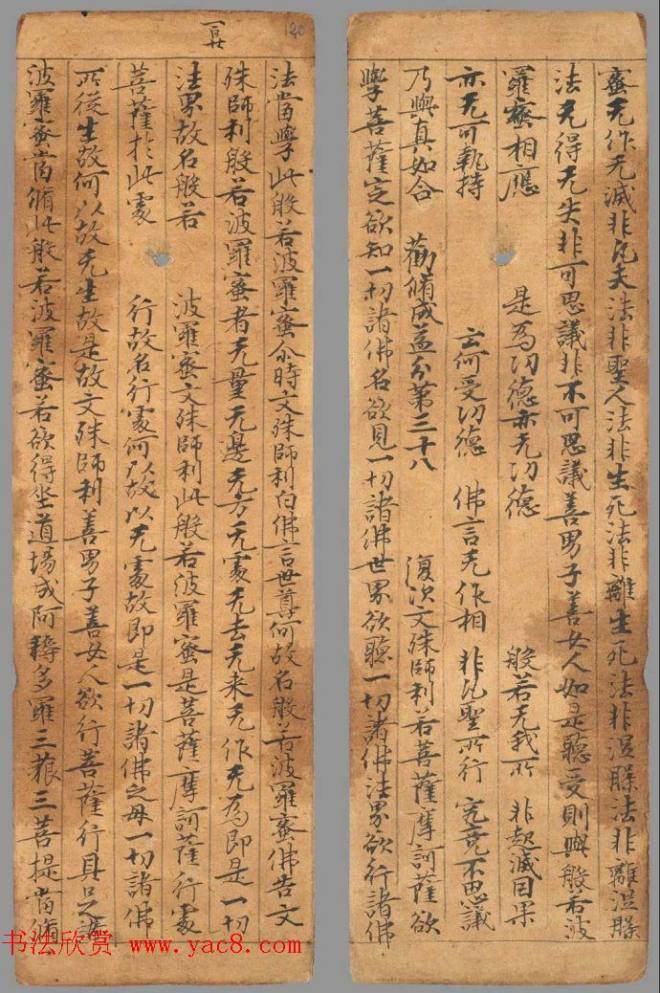 蜜无作无滅非凡夫法非聖人法非生死法非離生死法非涅槃法非離涅槃
法无得无失非可思議非不可思議善男子善女人如是聽受則與般若波
羅蜜相應 是為功德亦无功德 般若无我所 非起滅因果
亦无可執持 云何受功德 佛言无作相 非凡聖所行 究竟不思議
乃與真如合 勸脩成益分第三十八 復次文殊師利若菩薩摩訶薩欲
學菩薩定欲知一切諸佛名欲見一切諸佛世界欲聽一切諸佛法界欲行諸佛
120
一百廿
法當學此般若波羅蜜尒時文殊師利白佛言世尊何故名般若波羅蜜佛告文
殊師利般若波羅蜜者无量无邊无方无處无去无来无作无為即是一切
法界故名般若 波羅蜜文殊師利此般若波羅蜜是菩薩摩訶薩行處
菩薩於此處 行故名行處何以故以无處故即是一切諸佛之母一切諸佛
所從生故何以故无生故是故文殊師利善男子善女人欲行菩薩行具足
波羅蜜當脩此般若波羅蜜若欲得坐道場成阿耨多羅三藐三菩提當脩
书法欣赏 www.yac8.com